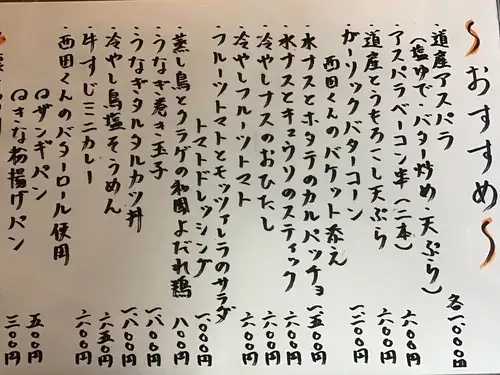 〜おすすめ〜
・道産アスパラ
（塩ゆで・バター炒め・天ぷら） 各一、〇〇〇円
・アスパラベーコン串（二本） 六〇〇円
・道産とうもろこし天ぷら 六〇〇円
・ガーリックバターコーン
西田くんのバゲット添え 一、二〇〇円
・水ナスとホタテのカルパッチョ 一、五〇〇円
・水ナスとキュウリのスティック 六〇〇円
・冷やしナスのおひたし 六〇〇円
・冷やしフルーツトマト 六〇〇円
・フルーツトマトとモッツァレラのサラダ
トマトドレッシング 一、〇〇〇円
・蒸し鳥とクラゲの和風よだれ鶏 八〇〇円
・うなぎ巻き玉子 一、八〇〇円
・うなぎタルタルカツ丼 一、八〇〇円
・冷やし鳥塩そうめん 六五〇円
・牛すじミニカレー 六〇〇円
・西田くんのバターロール使用
ザンギパン 五〇〇円
きな粉揚げパン 三〇〇円